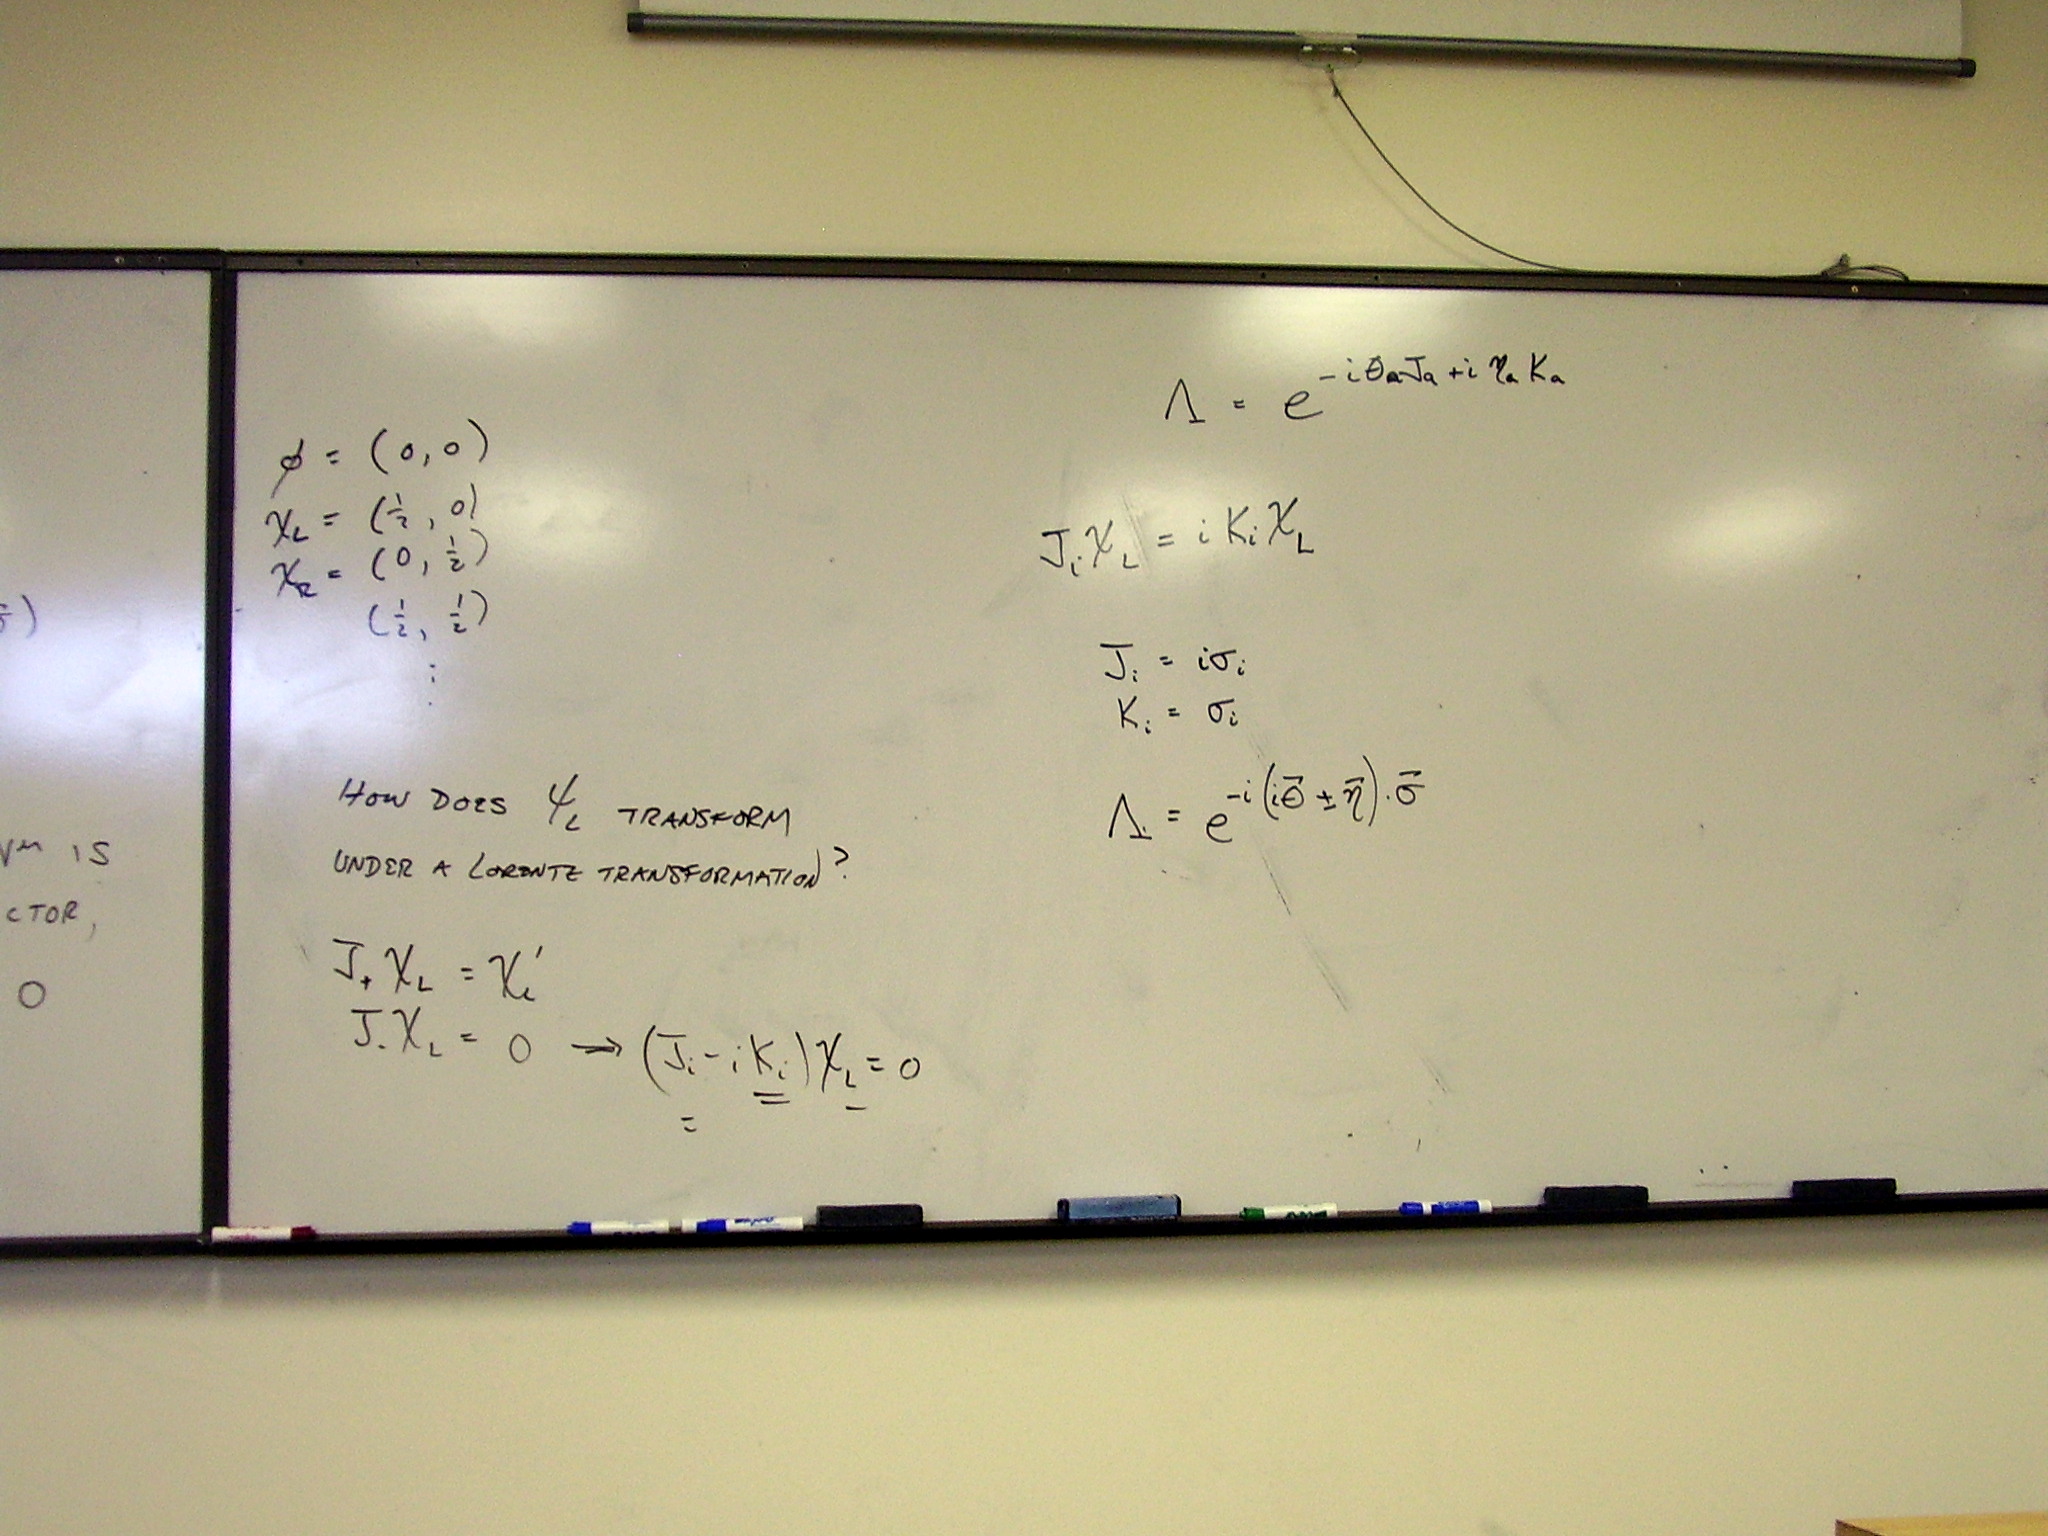 σ)
γμ IS
CTOR,
0
φ = (0,0)
χ_L = (1/2, 0)
χ_R = (0, 1/2)
(1/2, 1/2)
⋮
HOW DOES ψ_L TRANSFORM
UNDER A LORENTZ TRANSFORMATION?
J₊ χ_L = χ_L'
J₋ χ_L = 0 → (J_i - i K_i) χ_L = 0
Λ = e^{-iθ_a J_a + i η_a K_a}
J_i χ_L = i K_i χ_L
J_i = iσ_i
K_i = σ_i
Λ = e^{-i(i\vec{θ} ± \vec{η})·\vec{σ}}